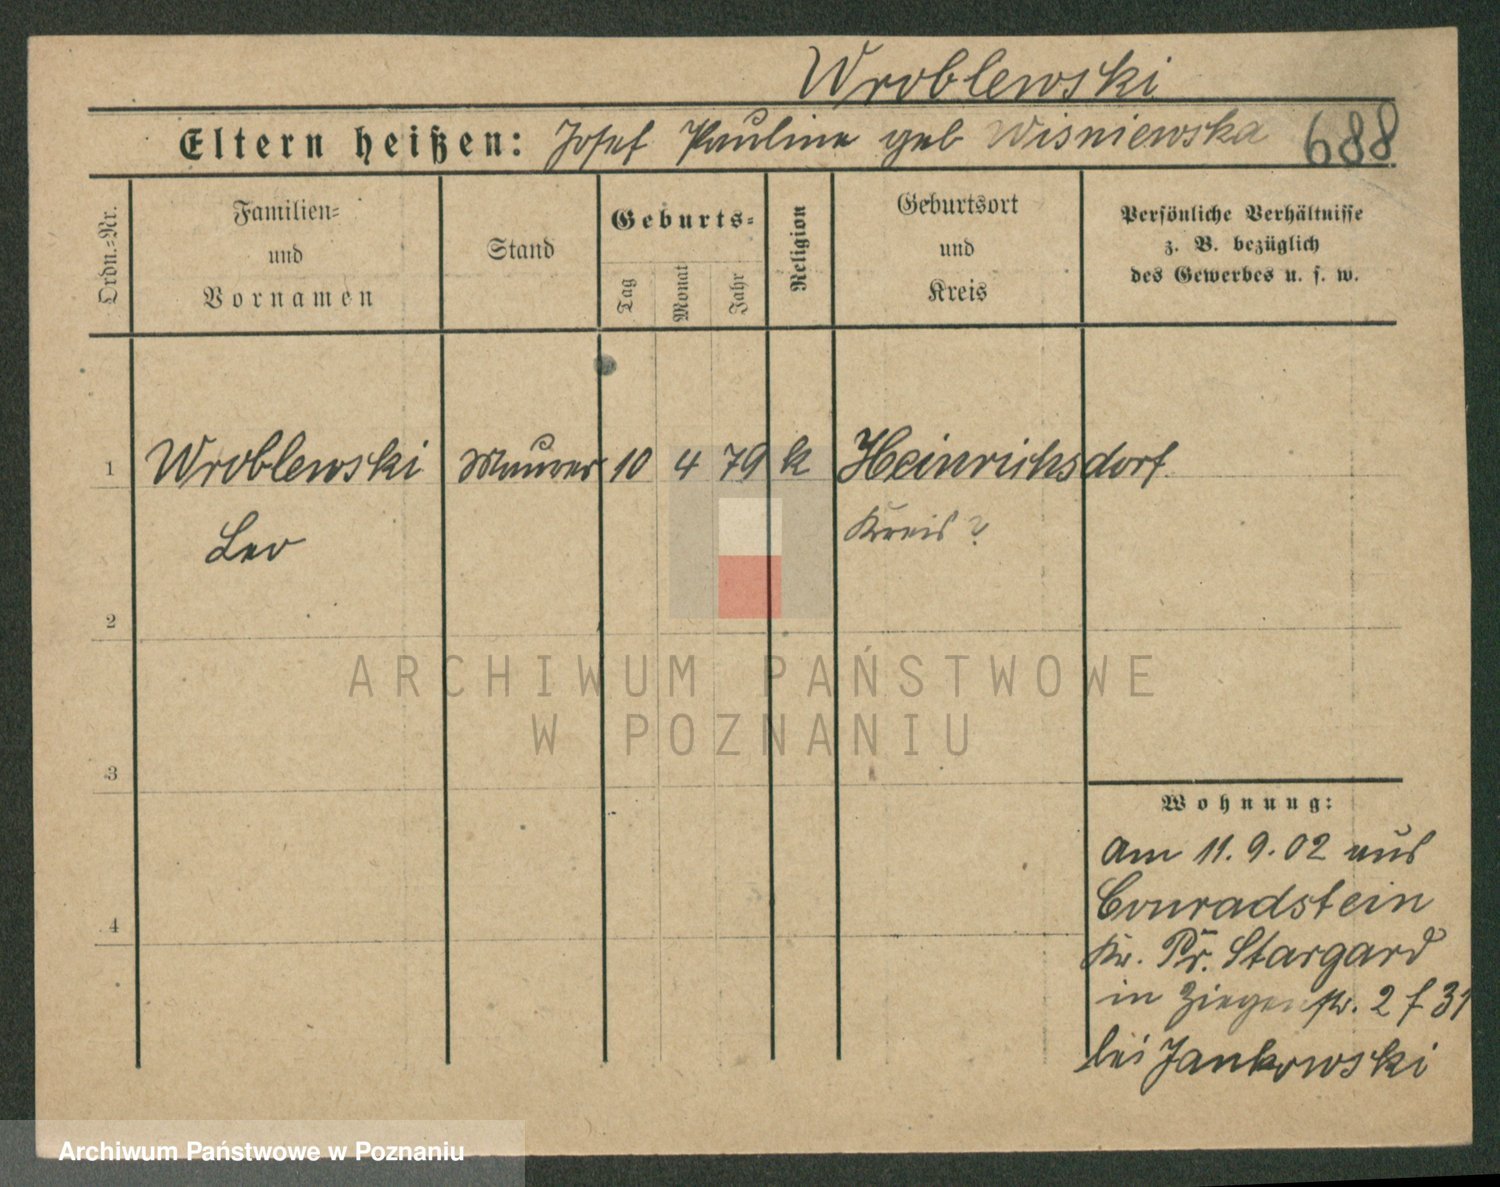 Wroblewski
Eltern heißen: Josef Pauline geb Wisniewska 688
Ordn.-Nr.
Familien-
und
Vornamen
Stand
Geburts-
Tag Monat Jahr
Religion
Geburtsort
und
Kreis
Persönliche Verhältnisse
z. B. bezüglich
des Gewerbes u. s. w.
1 Wroblewski Maurer 10 4 79 k Heinrichsdorf
Leo Kreis ?
2
3
4
Wohnung:
am 11.9.02 aus
Conradstein
Kr. Pr. Stargard
in Ziegenstr. 2 f 31
bei Jankowski
ARCHIWUM PAŃSTWOWE
W POZNANIU
Archiwum Państwowe w Poznaniu